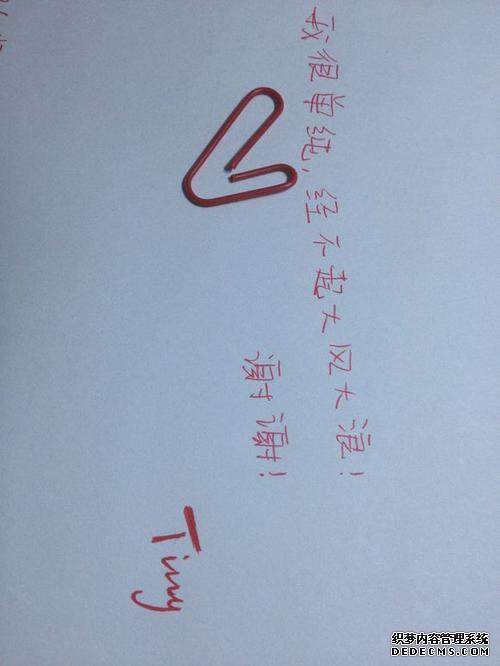 我很单纯，经不起大风大浪！
谢谢！
Timy
织梦内容管理系统
DEDECMS.COM